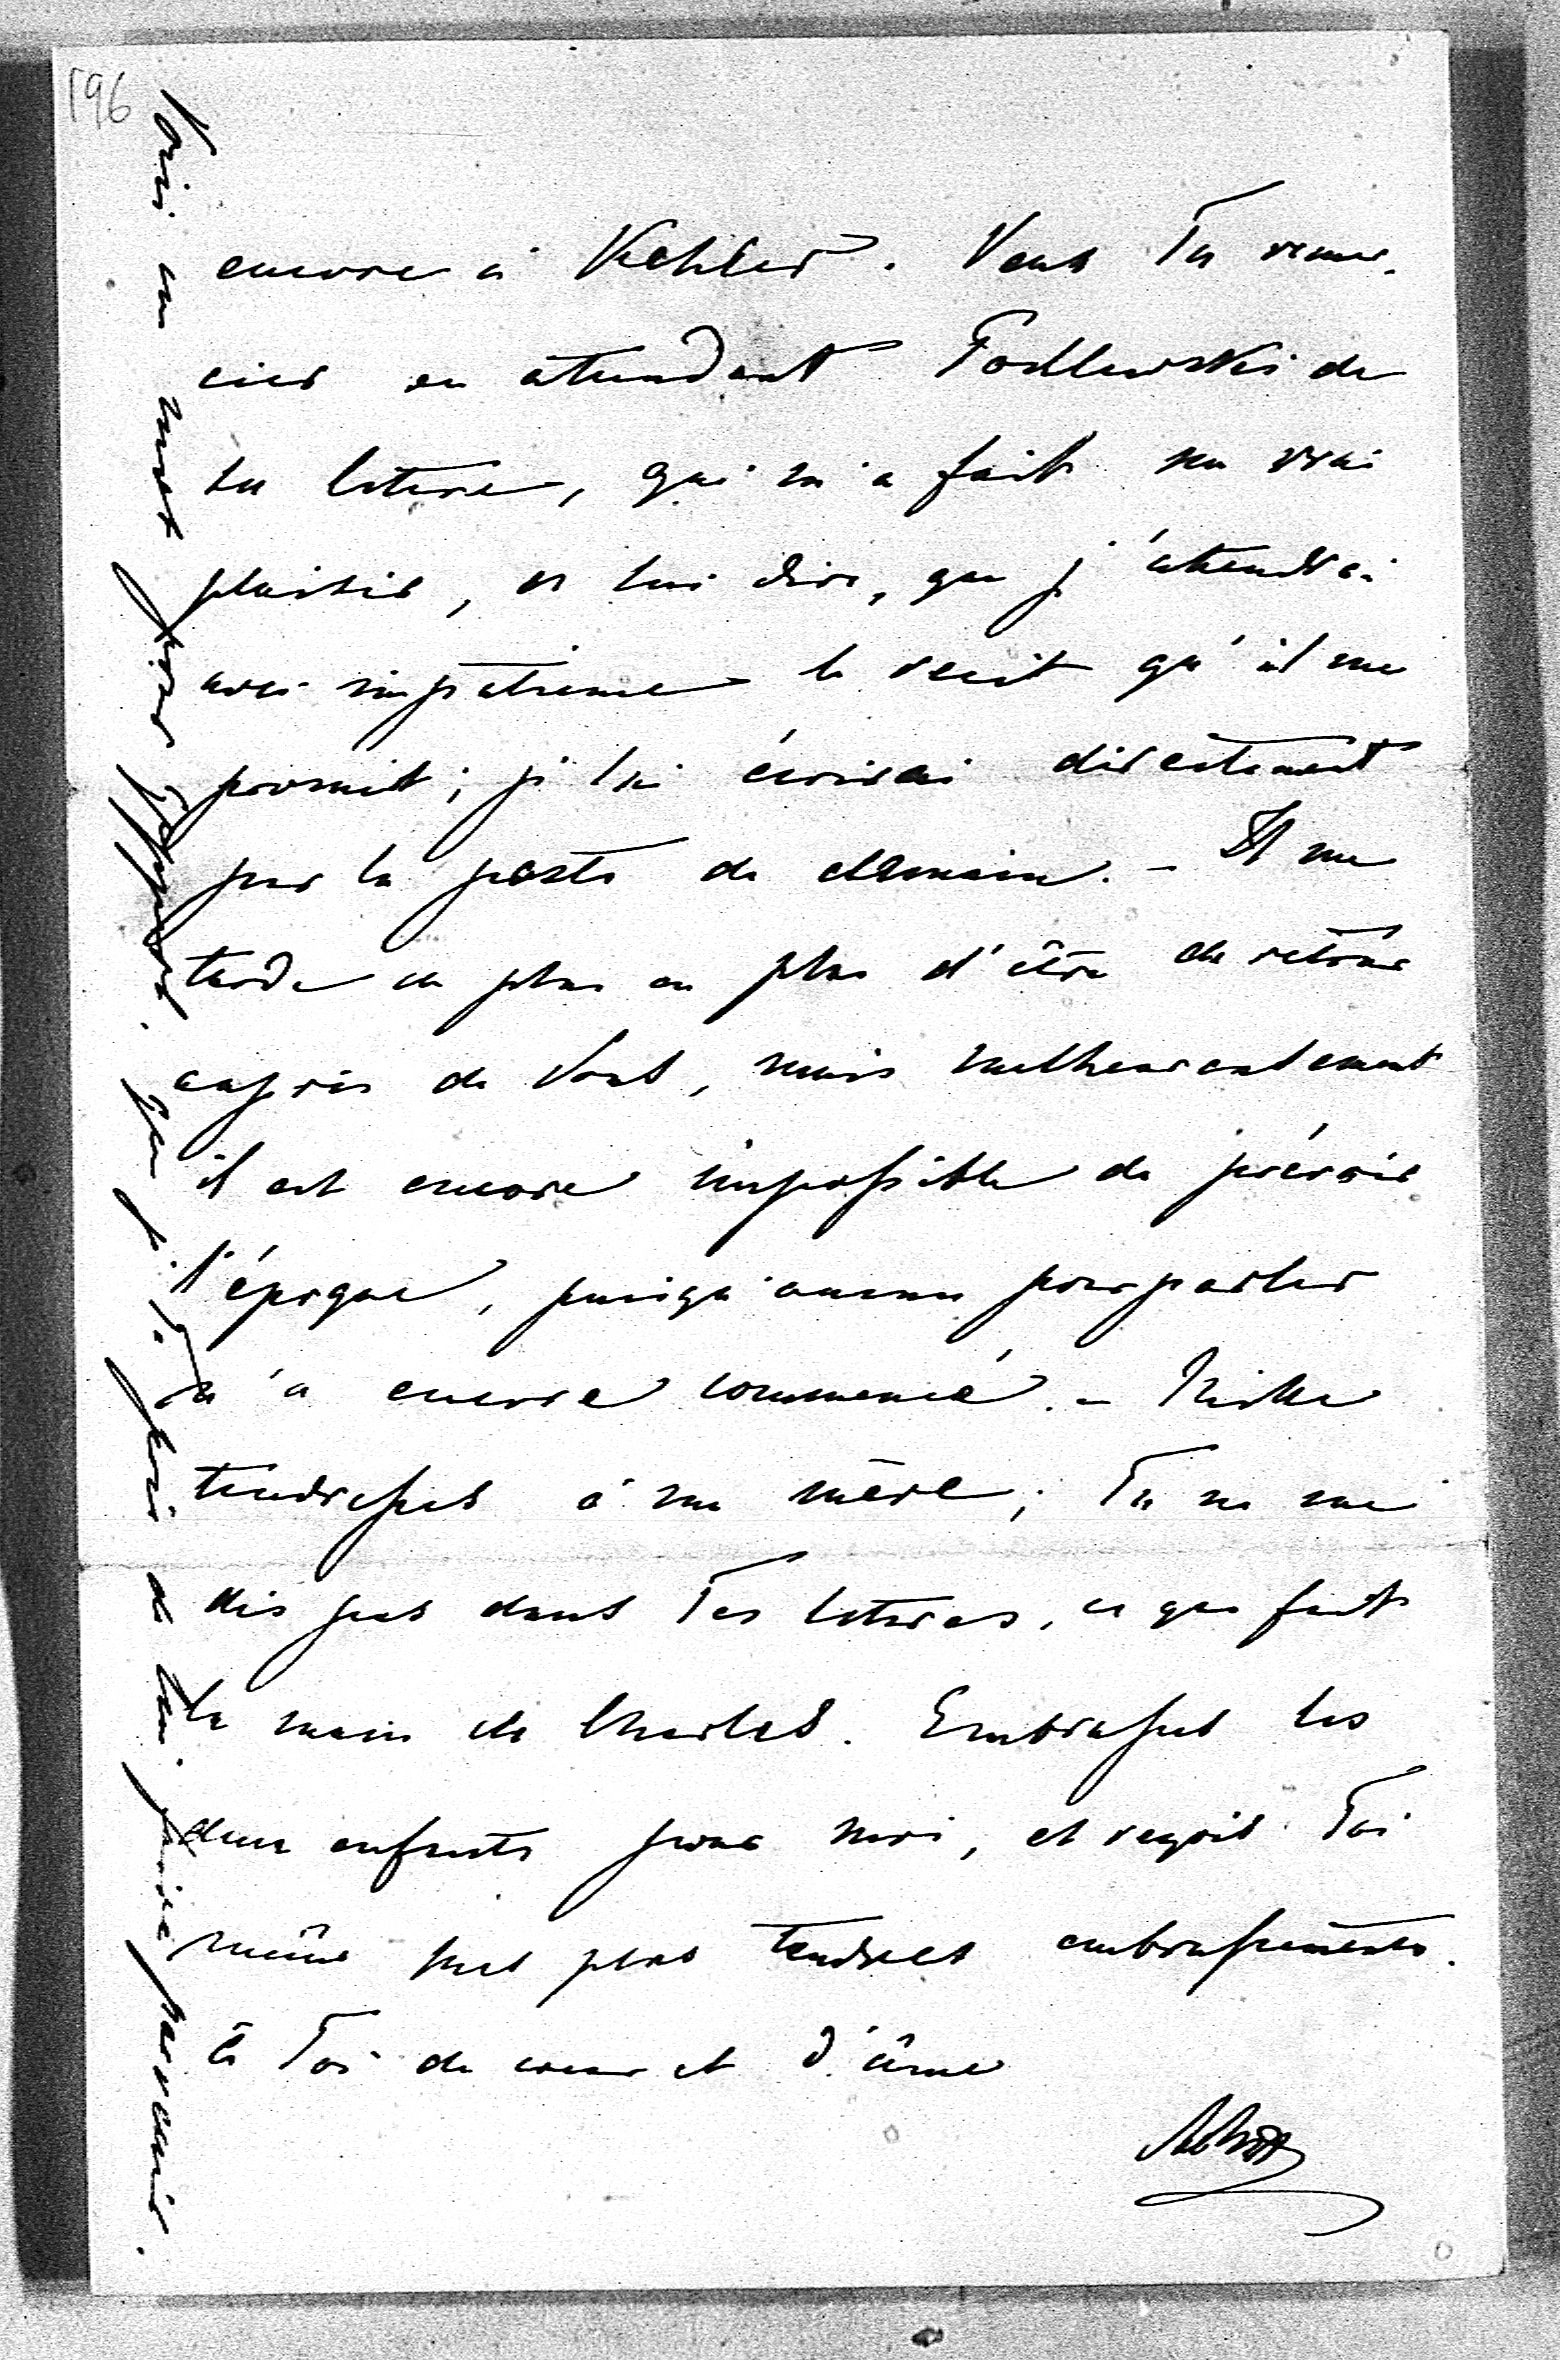 196
encore à Kehler. Veux Tu remer-
cier en attendant Podlewski de
sa lettre, qui m'a fait un vrai
plaisir, et lui dire, que j'attendrai
avec impatience le recit qu'il me
promit; je lui écrirai directement
par la poste de demain. – Il me
tarde de plus en plus d'être de retour
auprès de Vous, mais malheureusement
il est encore impossible de prévoir
l'époque, puisqu'aucun pourparler
n'a encore commencé. – Mille
tendresses à ma mère; Tu ne me
dis pas dans Tes lettres, ce que fait
la main de Charles. Embrasses les
deux enfants pour moi, et reçois Toi
même mes plus tendres embrassements.
à Toi de coeur et d'âme
Voici un mot pour que je Te prie de lui faire parvenir.